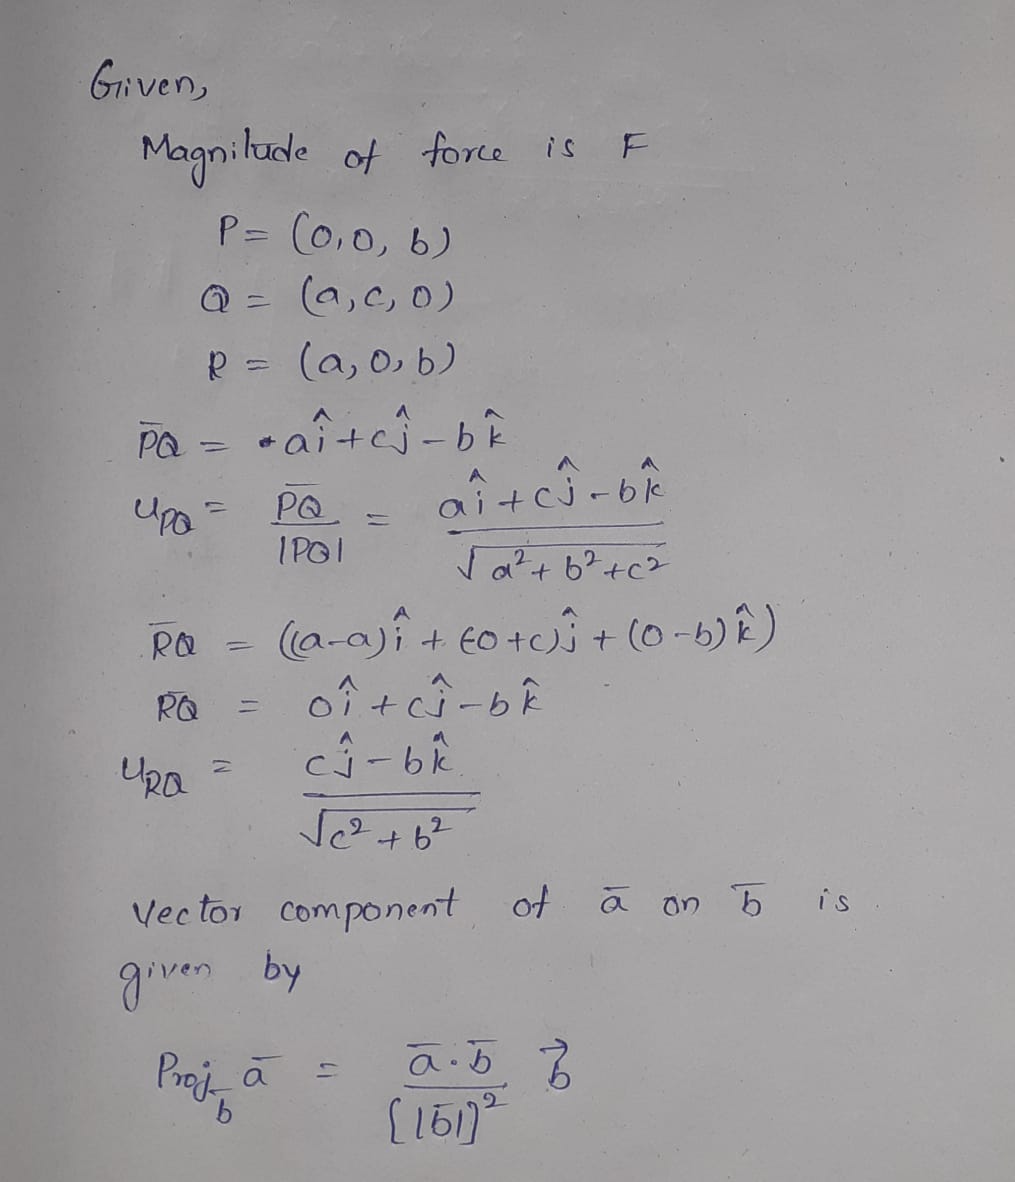 Given,
Magnitude of force is F
P = (0,0, b)
Q = (a,c,0)
R = (a,0,b)
P̄Q̄ = aî+cĵ-bk̂
u_PQ = PQ̅ / |PQ| = (aî+cĵ-bk̂) / √(a²+b²+c²)
R̄Q̄ = ((a-a)î + (0+c)ĵ + (0-b)k̂)
R̄Q̄ = 0î+cĵ-bk̂
u_RQ = (cĵ-bk̂) / √(c²+b²)
Vector component of ā on b̄ is
given by
Proj_b̄ ā = (ā.b̄ / [|b̄|]²) b⃗